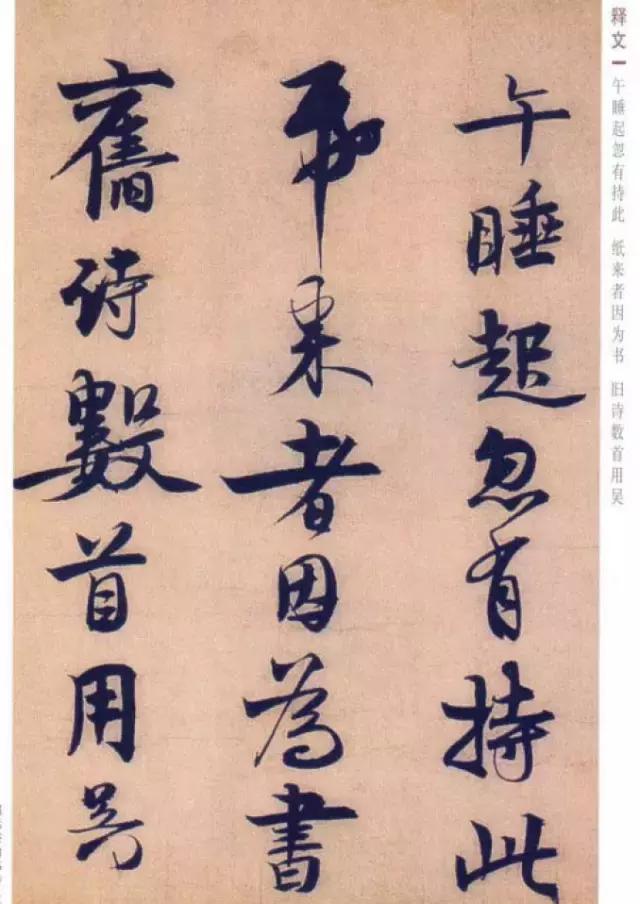 释文 午睡起忽有持此 纸来者因为书 旧诗数首用吴
午睡起忽有持此
帋来者因為書
舊诗數首用吴